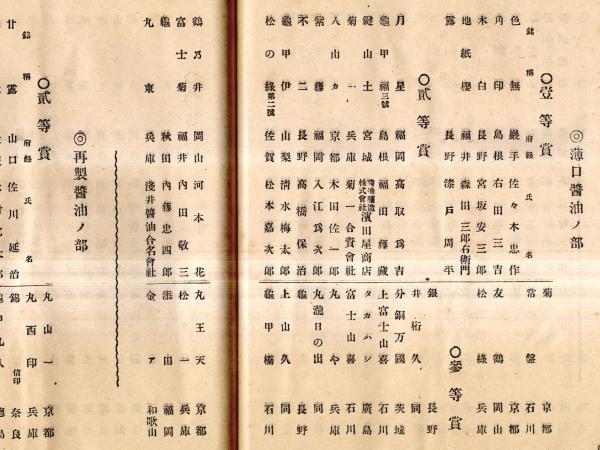 ◎薄口醤油ノ部
○壹等賞
銘稱 府縣 氏名
色無 巖手 佐々木忠作
角印 島根 右田三吉
木白 長野 宮坂安三郎
地紙櫻 福井 森田三郎右衛門
露 長野 戸周平
○貳等賞
月星 福岡 高取爲吉
龜甲福三號 島根 福田藤藏
鍵山土 宮城 醤油釀造株式會社濱田屋商店
菊一 兵庫 菊一合資會社
入山カ 京都 木田佐一郎
紫藤 福岡 入江爲次郎
不二 長野 高橋保治
龜甲伊 山梨 清水梅太郎
松の綠第二號 佐賀 松本嘉次郎
菊 京都
常盤 石川
京都
友鶴 岡山
松綠 兵庫
○參等賞
銀 長野
井桁久 同
分銅万國 茨城
上富士山喜 石川
タカムシ 廣島
富士山喜 石川
丸や 京都
丸瀧日の出 同
長野
上山久 同
龜甲橋 石川
鶴乃井 岡山 河本花
富士菊 福井 内田敬三
龜 秋田 内藤忠四郎
丸東 兵庫 淺井醤油合名會社
丸王天 京都
松一 兵庫
添田 福岡
金ア 和歌山
◎再製醤油ノ部
○貳等賞
銘稱 府縣 氏名
甘露 山口 佐川延治
丸山一 京都
丸西印 兵庫
錫信印 奈良